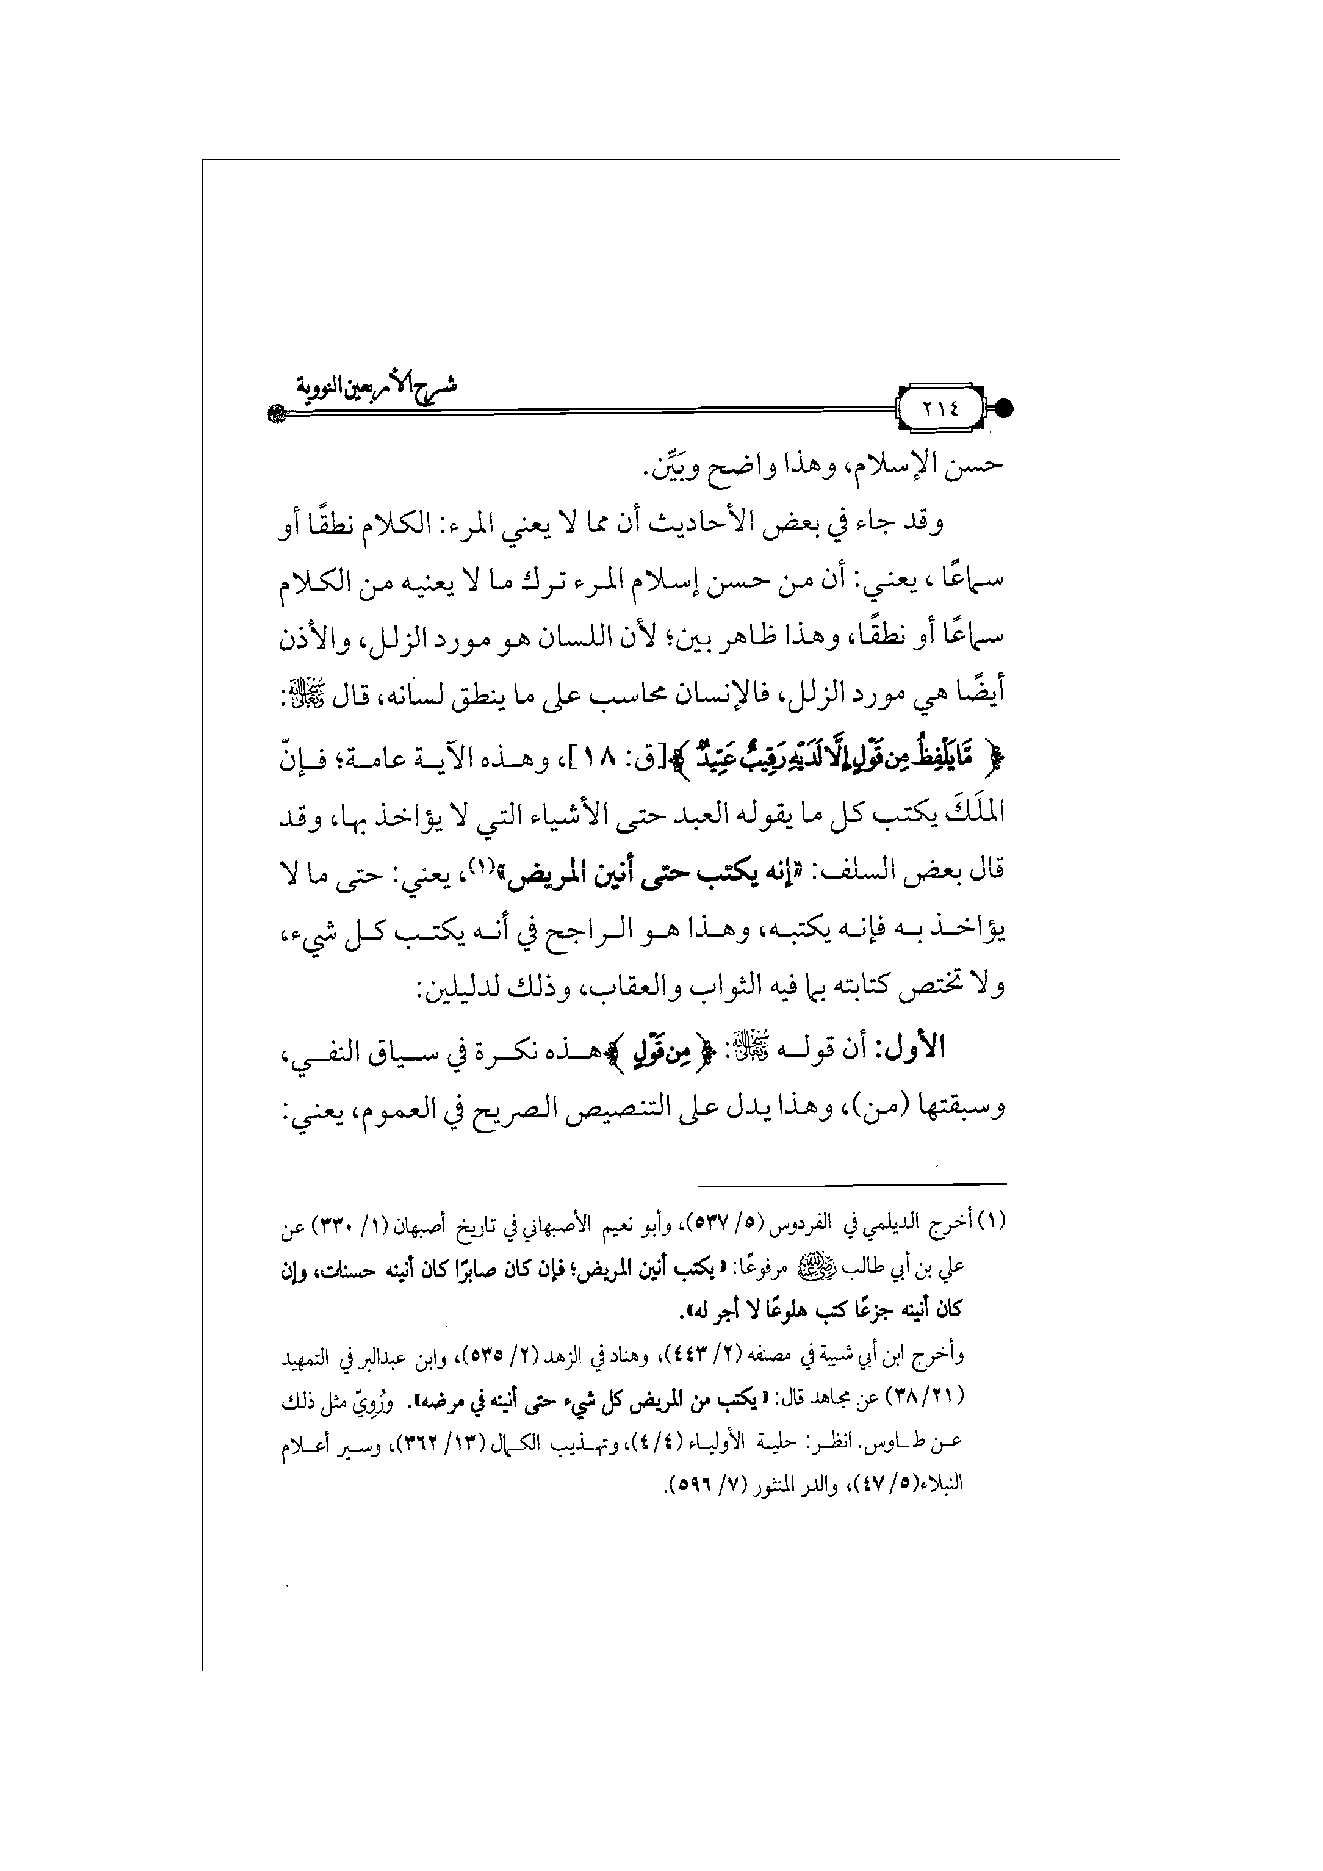 شرح الأربعين النووية
٢١٤
حسن الإسلام، وهذا واضح وبَيِّن.
وقد جاء في بعض الأحاديث أن مما لا يعني المرء: الكلام نطقًا أو
سماعًا، يعني: أن من حسن إسلام المرء ترك ما لا يعنيه من الكلام
سماعًا أو نطقًا، وهذا ظاهر بين؛ لأن اللسان هو مورد الزلل، والأذن
أيضًا هي مورد الزلل، فالإنسان محاسب على ما ينطق لسانه، قال :
﴿ مَّا يَلْفِظُ مِن قَوْلٍ إِلَّا لَدَيْهِ رَقِيبٌ عَتِيدٌ ﴾[ق: ١٨]، وهذه الآية عامة؛ فإنّ
الملَكَ يكتب كل ما يقوله العبد حتى الأشياء التي لا يؤاخذ بها، وقد
قال بعض السلف: «إنه يكتب حتى أنين المريض»(١)، يعني: حتى ما لا
يؤاخذ به فإنه يكتبه، وهذا هو الراجح في أنه يكتب كل شيء،
ولا تختص كتابته بما فيه الثواب والعقاب، وذلك لدليلين:
الأول: أن قوله : ﴿ مِن قَوْلٍ ﴾هذه نكرة في سياق النفي،
وسبقتها (من)، وهذا يدل على التنصيص الصريح في العموم، يعني:
(١) أخرج الديلمي في الفردوس (٥/ ٥٣٧)، وأبو نعيم الأصبهاني في تاريخ أصبهان (١/ ٣٣٠) عن
علي بن أبي طالب رضي الله عنه مرفوعًا: «يكتب أنين المريض؛ فإن كان صابرًا كان أنينه حسنات، وإن
كان أنينه جزعًا كتب هلوعًا لا أجر له».
وأخرج ابن أبي شيبة في مصنفه (٢/ ٤٤٣)، وهناد في الزهد (٢/ ٥٣٥)، وابن عبدالبر في التمهيد
(٢١/ ٣٨) عن مجاهد قال: «يكتب من المريض كل شيء حتى أنينه في مرضه». ورُوِيّ مثل ذلك
عن طاوس. انظر: حلية الأولياء (٤/ ٤)، وتهذيب الكمال (١٣/ ٣٦٢)، وسير أعلام
النبلاء(٥/ ٤٧)، والدر المنثور (٧/ ٥٩٦).